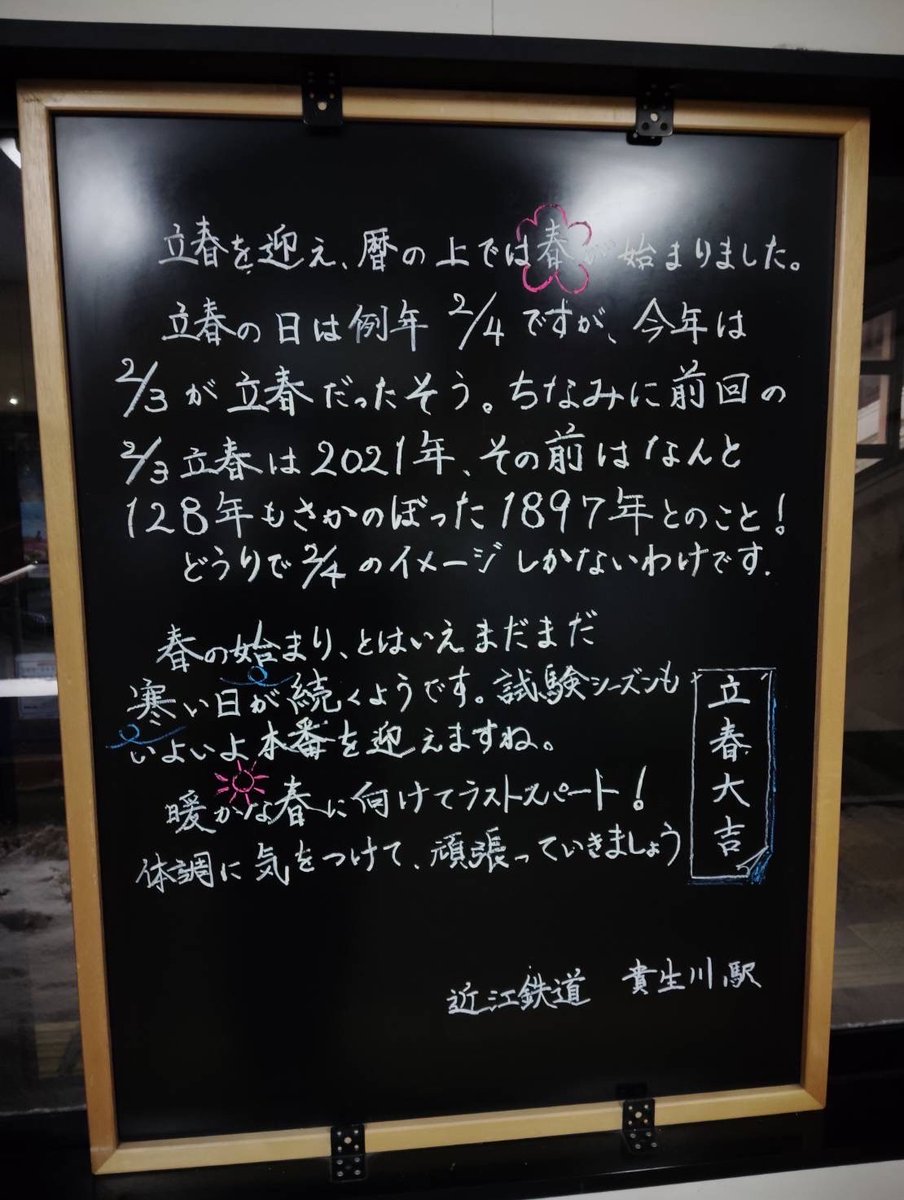 立春を迎え、暦の上では春が始まりました。
立春の日は例年2/4ですが、今年は
2/3が立春だったそう。ちなみに前回の
2/3立春は2021年、その前はなんと
128年もさかのぼった1897年とのこと!
どうりで2/4のイメージしかないわけです.
春の始まり、とはいえまだまだ
寒い日が続くようです。試験シーズンも
いよいよ本番を迎えますね。
暖かな春に向けてラストスパート!
体調に気をつけて、頑張っていきましょう
立春大吉
近江鉄道 貴生川駅